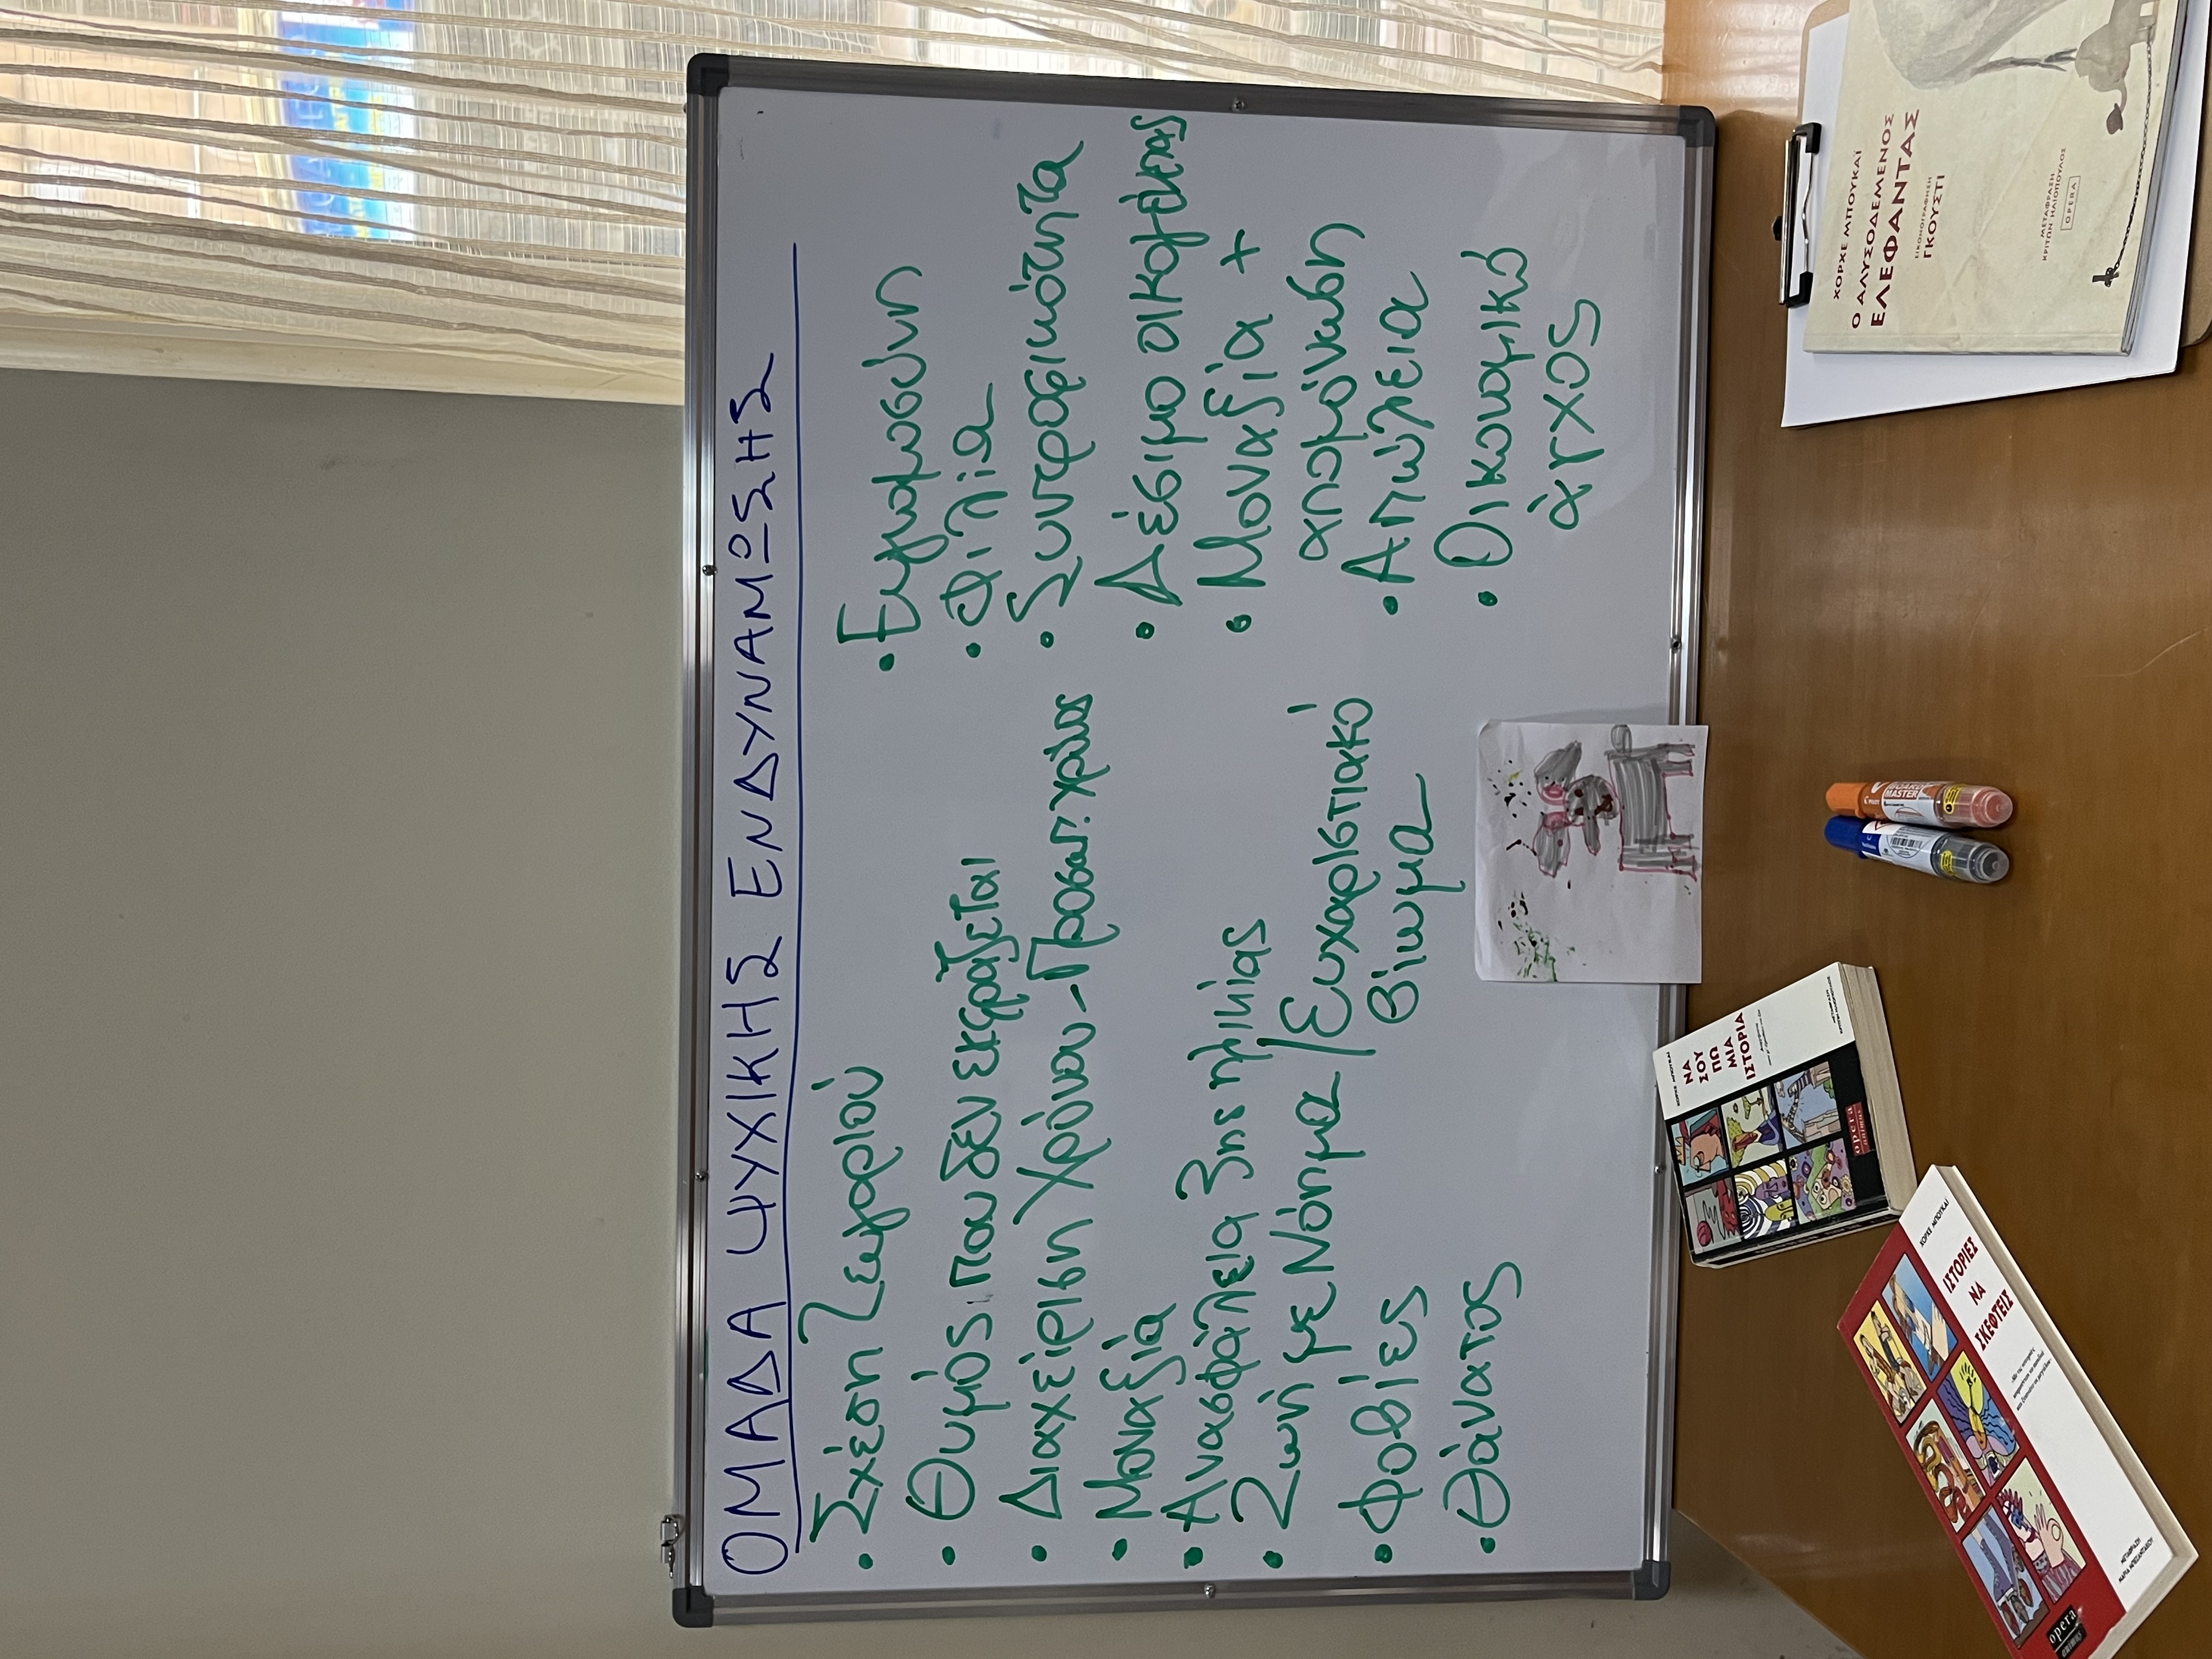 ΟΜΑΔΑ ΨΥΧΙΚΗΣ ΕΝΔΥΝΑΜΩΣΗΣ
• Σχέση Ζευγαριού
• Θυμός που δεν εκφράζεται
• Διαχείριση Χρόνου - Προσωπ. χρόνος
• Μοναξιά
• Ανασφάλεια 3ης ηλικίας
• Ζωή με Νόημα / Ευχαριστιακό
βίωμα
• Φοβίες
• Θάνατος
• Ευγνωμοσύνη
• Φιλία
• Συντροφικότητα
• Δέσιμο οικογένειας
• Μοναξιά +
απομόνωση
• Απώλεια
• Οικονομικό
άγχος
ΧΟΡΧΕ ΜΠΟΥΚΑΪ
ΙΣΤΟΡΙΕΣ
ΝΑ
ΣΚΕΦΤΕΙΣ
ΜΕΤΑΦΡΑΣΗ
opera
ΝΑ
ΣΟΥ
ΠΩ
ΜΙΑ
ΙΣΤΟΡΙΑ
opera
BOARD
MASTER
ΧΟΡΧΕ ΜΠΟΥΚΑΪ
Ο ΑΛΥΣΟΔΕΜΕΝΟΣ
ΕΛΕΦΑΝΤΑΣ
ΕΙΚΟΝΟΓΡΑΦΗΣΗ
ΓΚΟΥΣΤΙ
ΜΕΤΑΦΡΑΣΗ
ΚΡΙΤΩΝ ΗΛΙΟΠΟΥΛΟΣ
OPERA